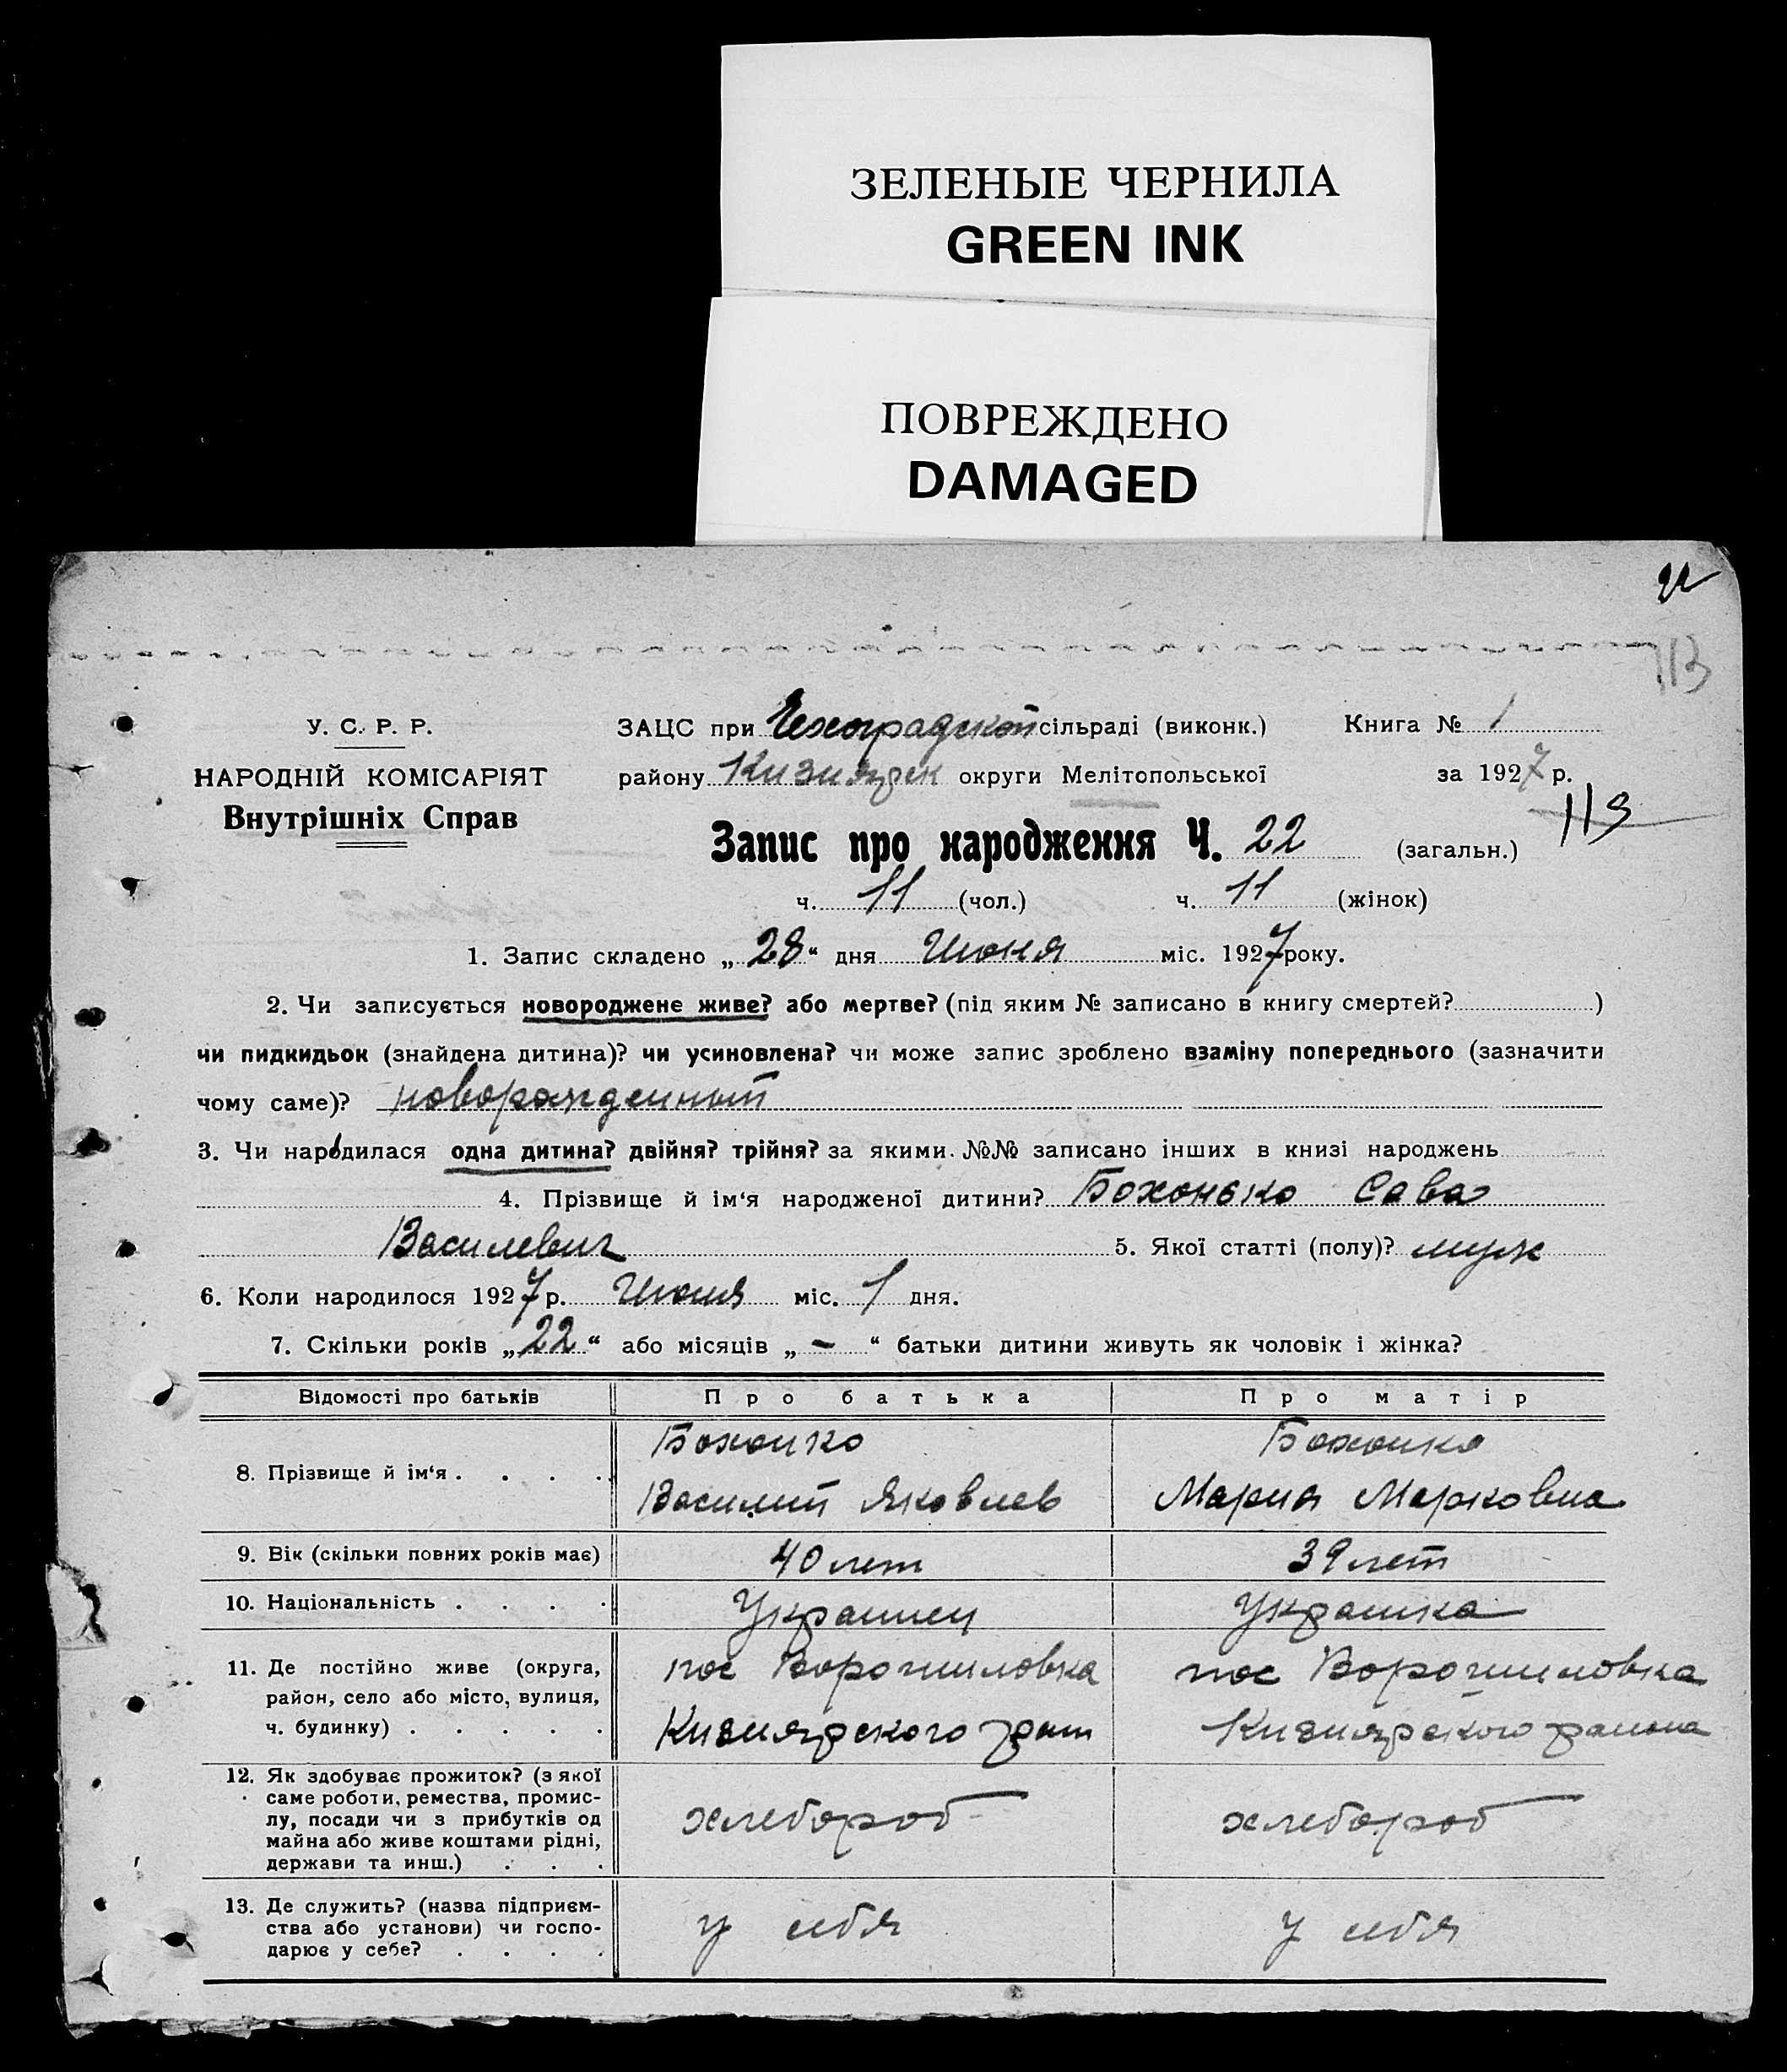 ЗЕЛЕНЫЕ ЧЕРНИЛА
GREEN INK
ПОВРЕЖДЕНО
DAMAGED
113
У. С. Р. Р.
НАРОДНІЙ КОМІСАРІЯТ
Внутрішніх Справ
ЗАЦС при Чехоградской сільраді (виконк.) Книга № 1
району Кизиярск округи Мелітопольської за 1927 р.
113
Запис про народження Ч. 22 (загальн.)
ч. 11 (чол.) ч. 11 (жінок)
1. Запис складено „28“ дня Июня міс. 1927 року.
2. Чи записується новороджене живе? або мертве? (під яким № записано в книгу смертей? )
чи пидкидьок (знайдена дитина)? чи усиновлена? чи може запис зроблено взаміну попереднього (зазначити
чому саме)? новорожденный
3. Чи народилася одна дитина? двійня? трійня? за якими №№ записано інших в книзі народжень
4. Прізвище й ім‘я народженої дитини? Бохонько Сава
Василевич 5. Якої статті (полу)? муж
6. Коли народилося 1927 р. Июня міс. 1 дня.
7. Скільки років „22“ або місяців „ – “ батьки дитини живуть як чоловік і жінка?
Відомості про батьків Про батька Про матір
8. Прізвище й ім‘я . . . . Бохонко Бохонка
Василий Яковлев Мария Марковна
9. Вік (скільки повних років має) 40 лет 39 лет
10. Національність . . . . Украинец Украинка
11. Де постійно живе (округа, район, село або місто, вулиця, ч. будинку) . . . . . пос Ворошиловка пос Ворошиловка
Кизиярского район Кизиярского района
12. Як здобуває прожиток? (з якої
саме роботи, ремества, промис-
лу, посади чи з прибутків од
майна або живе коштами рідні,
держави та инш.) . . . хлебороб хлебороб
13. Де служить? (назва підприєм-
ства або установи) чи госпо-
дарює у себе? . . . . у себя у себя